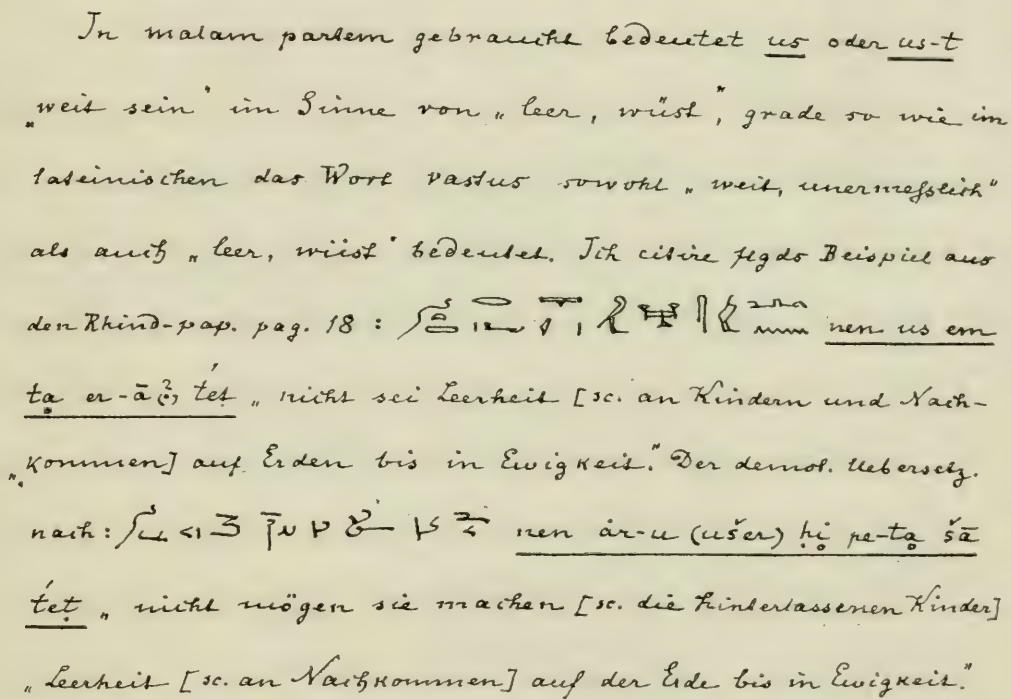 In malam partem gebraucht bedeutet us oder us-t
„weit sein" im Sinne von „leer, wüst", grade so wie im
lateinischen das Wort vastus sowohl „weit, unermeßlich"
als auch „leer, wüst" bedeutet. Ich citire flgds Beispiel aus
den Rhind-pap. pag. 18 : nen us em
ta er-ā tet „nicht sei Leerheit [sc. an Kindern und Nach-
„kommen] auf Erden bis in Ewigkeit." Der demot. Uebersetz.
nach: nen àr-u (ušer) ḥi pe-ta šā
tet „nicht mögen sie machen [sc. die hinterlassenen Kinder]
„Leerheit [sc. an Nachkommen] auf der Erde bis in Ewigkeit."